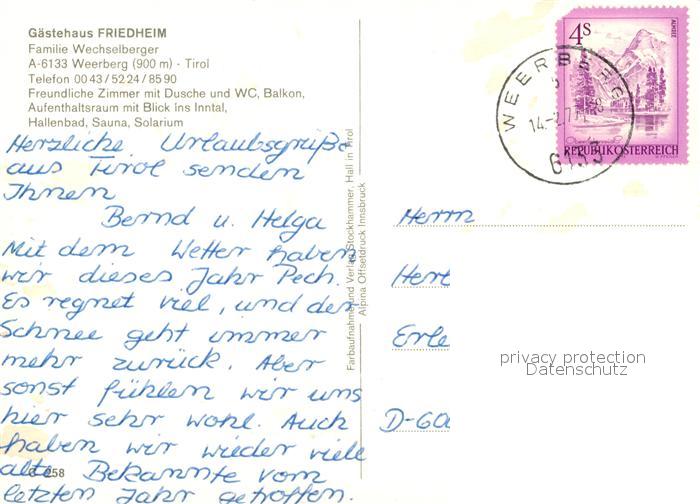 Gästehaus FRIEDHEIM
Familie Wechselberger
A-6133 Weerberg (900 m) - Tirol
Telefon 00 43 / 52 24 / 85 90
Freundliche Zimmer mit Dusche und WC, Balkon,
Aufenthaltsraum mit Blick ins Inntal,
Hallenbad, Sauna, Solarium
Herzliche Urlaubsgrüße
aus Tirol senden
Ihnen
Bernd u. Helga
Mit dem Wetter haben
wir dieses Jahr Pech.
Es regnet viel, und der
Schnee geht immer
mehr zurück. Aber
sonst fühlen wir uns
hier sehr wohl. Auch
haben wir wieder viele
alte Bekannte vom
letzten Jahr getroffen.
258
Farbaufnahme und Verlag Stockhammer, Hall in Tirol
Alpina Offsetdruck Innsbruck
4S
ALMSEE
REPUBLIK ÖSTERREICH
WEERBERG
14.-2.77
6133
Herrn
Her
Erle
D-60
privacy protection
Datenschutz